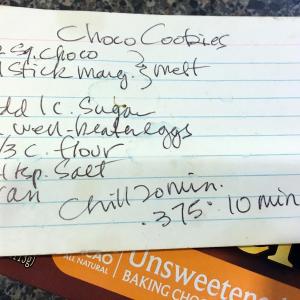 Choco Cookies
sq. choco
1 stick marg. } melt
dd 1 c. sugar
well-beaten eggs
/3 c. flour
tsp. salt
Chill 20 min.
375° 10 min
CAO
ALL NATURAL
Unsweetene
BAKING CHO